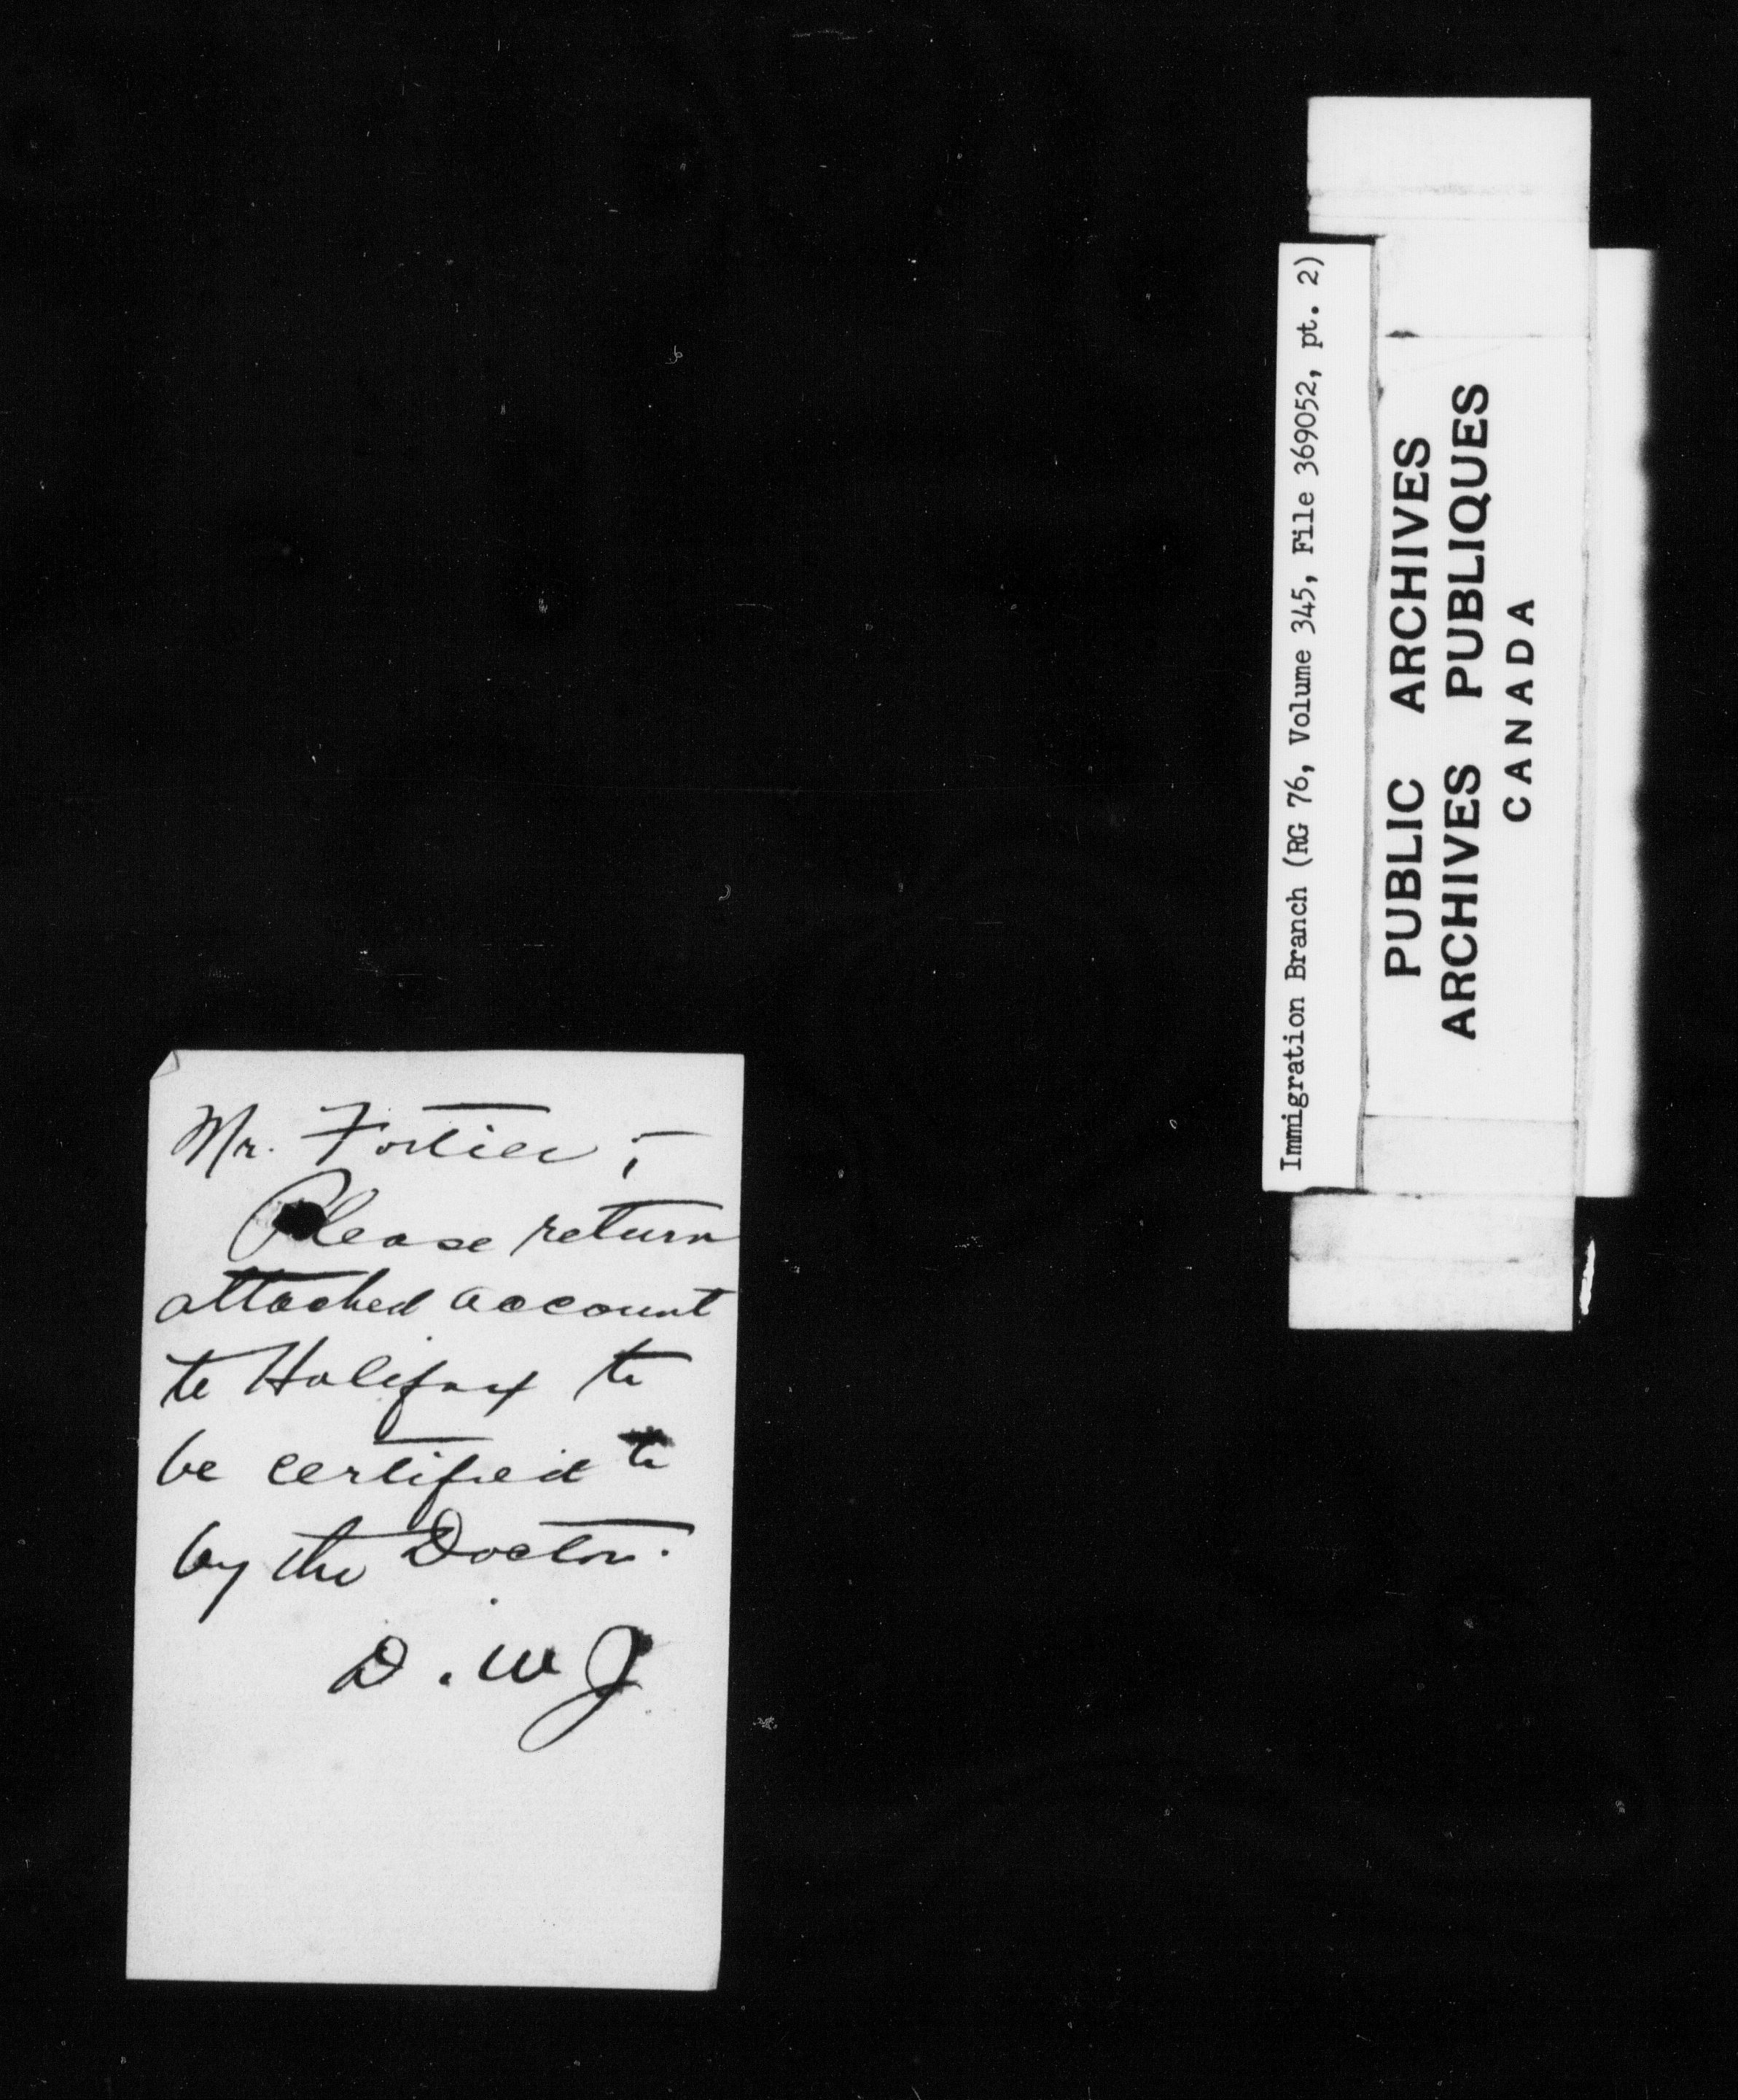 Mr. Fortier;
Please return
attached account
to Halifax to
be certified to
by the Doctor.
D. W J
Immigration Branch (RG 76, Volume 345, File 369052, pt. 2)
PUBLIC ARCHIVES
ARCHIVES PUBLIQUES
CANADA